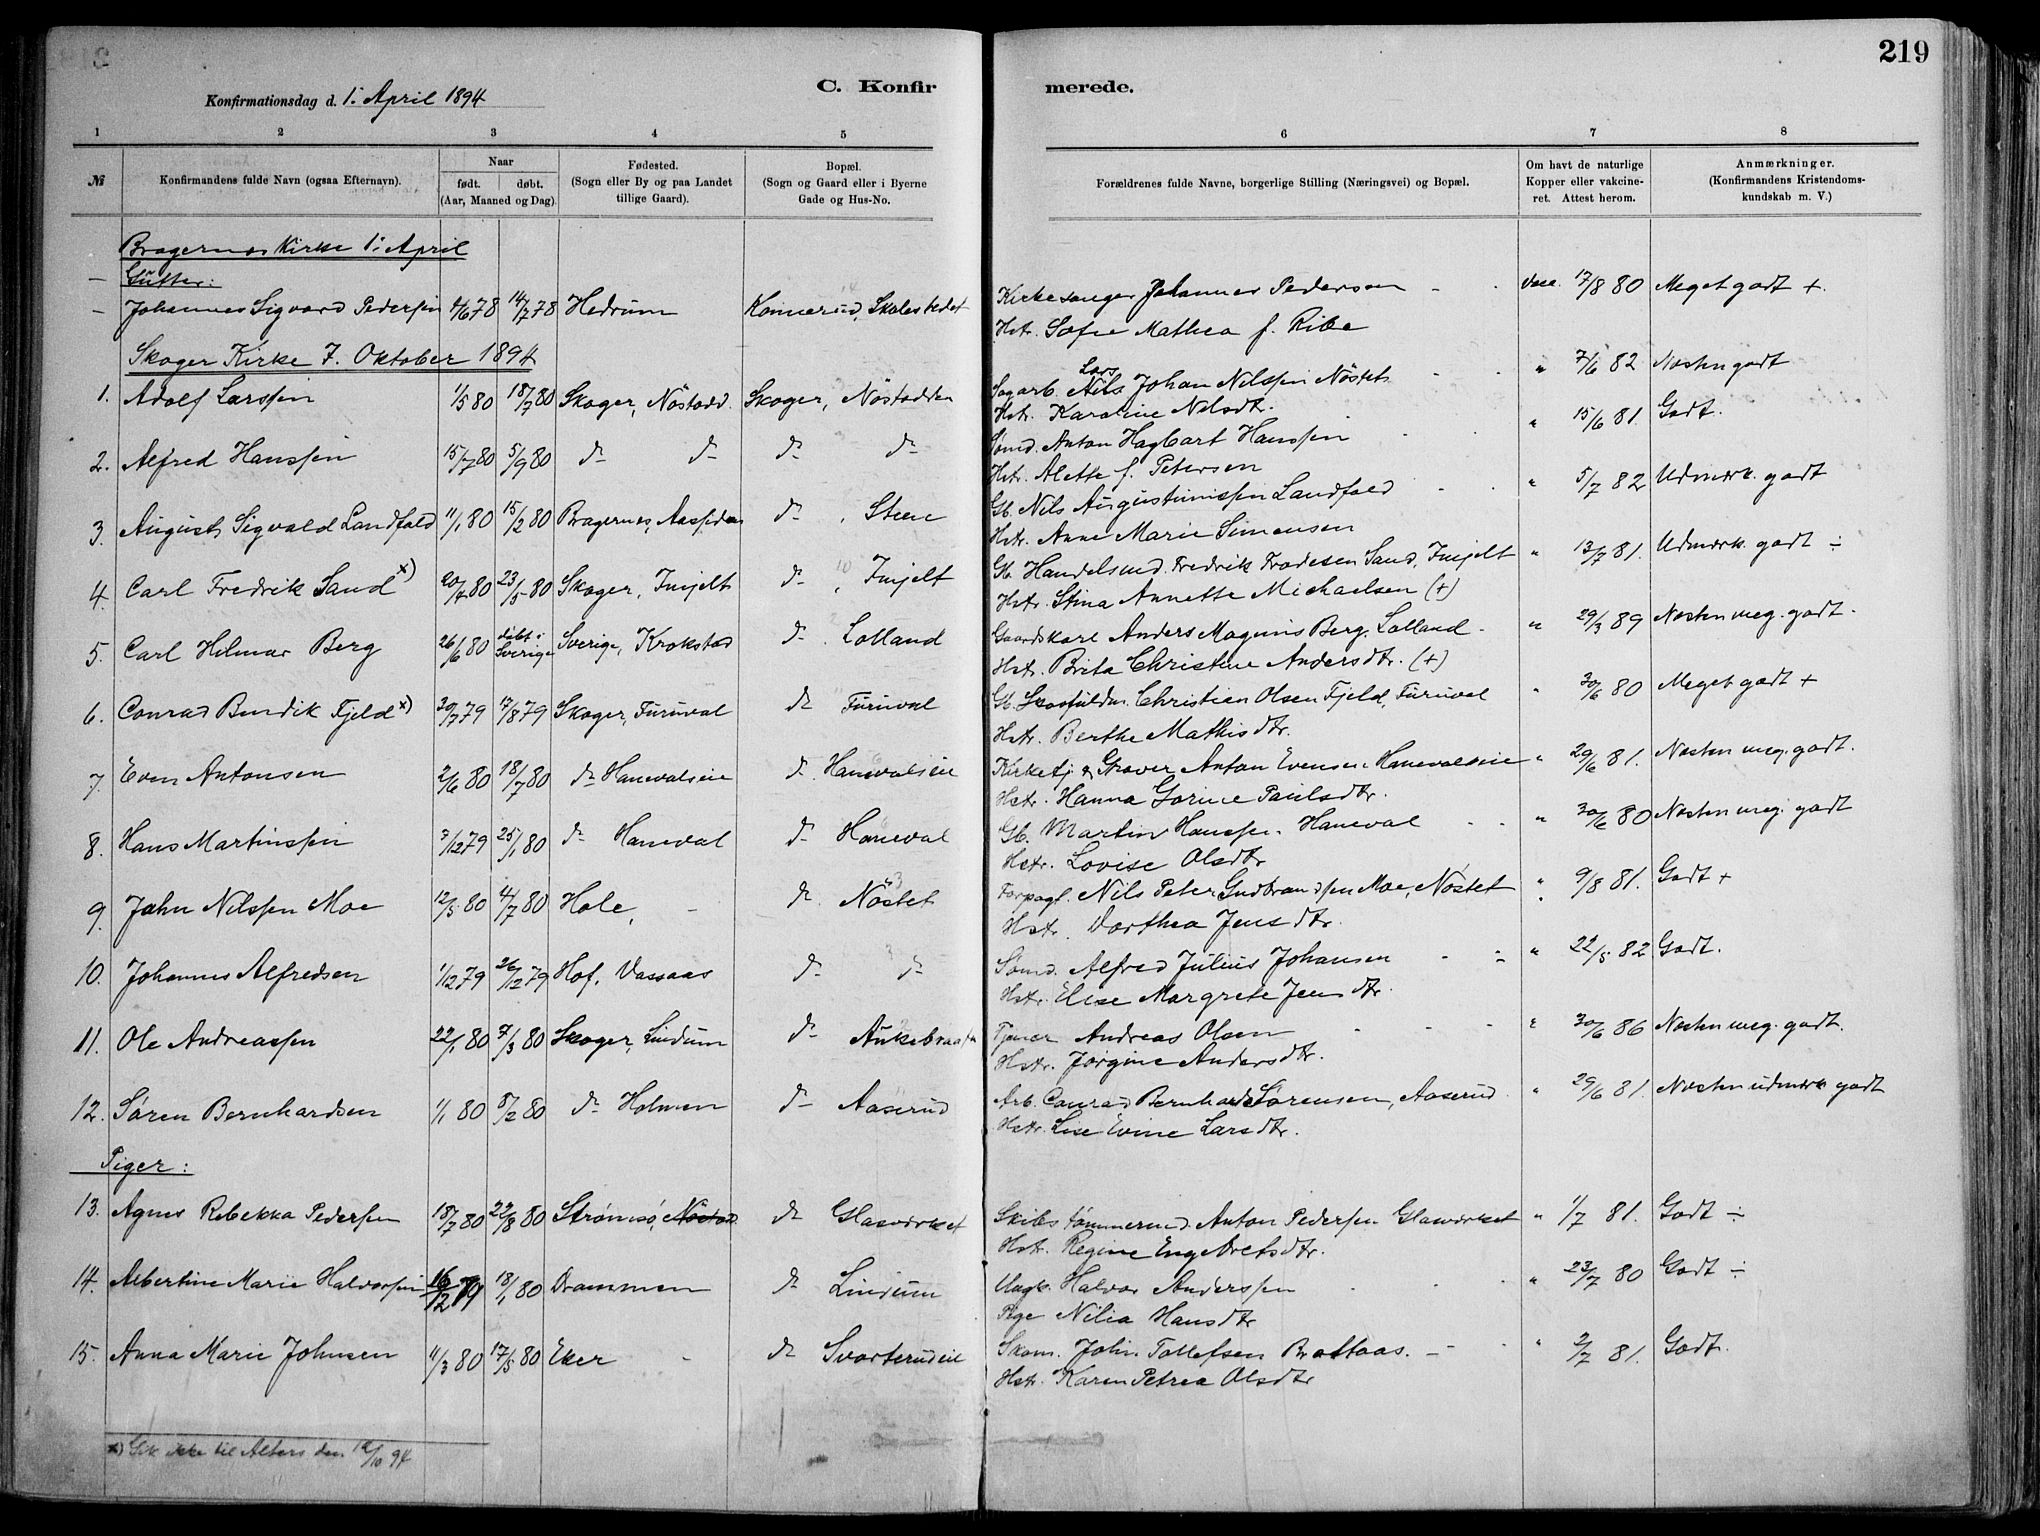 219
Konfirmationsdag d. 1. April 1894
C. Konfirmerede.
1 2 3 4 5 6 7 8
№
Konfirmandens fulde Navn (ogsaa Efternavn).
Naar
født. døbt.
(Aar, Maaned og Dag).
Fødested.
(Sogn eller By og paa Landet
tillige Gaard).
Bopæl.
(Sogn og Gaard eller i Byerne
Gade og Hus-No.
Forældrenes fulde Navne, borgerlige Stilling (Næringsvei) og Bopæl.
Om havt de naturlige
Kopper eller vakcine-
ret. Attest herom.
Anmærkninger.
(Konfirmandens Kristendoms-
kundskab m. V.)
Bragernes Kirke 1. April
Gutter:
Johannes Sigvard Pedersen 4/6 78 14/7 78 Hedrum Konnerud, Skolestedet Kirkesanger Johannes Pedersen vacc. 17/8 80 Meget godt +.
Hstr. Sofie Mathea f. Ribe
Skoger Kirke 7. Oktober 1894
1. Adolf Larssen 1/5 80 18/7 80 Skoger, Nöstødd. Skoger, Nöstodden Sagarb. Lars Nils Johan Nilssen Nöstet " 7/6 82 Næsten godt
Hstr. Karoline Nilsdtr.
2. Alfred Hanssen 15/7 80 5/9 80 do do do do Sømd. Anton Hagbart Hanssen " 15/6 81. Godt.
Hstr. Alette f. Petersen
3. August Sigvald Landfald 11/1 80 15/2 80 Bragernes, Aassiden do, Steen Gb. Nils Augustinussen Landfald " 5/7 82 Udmærk. godt
Hstr. Anne Marie Simensen
4. Carl Fredrik Sand x) 20/4 80 23/5 80 Skoger, Imjelt do, Imjelt Gb. Handelsmd. Fredrik Frodesen Sand, Imjelt " 13/7 81. Udmærk. godt ÷
Hstr. Stina Annette Michaelsen (+)
5. Carl Helmar Berg 26/6 80 døbt i Sverige Sverige, Krokstad do Lolland Gaardskarl Anders Magnus Berg, Lolland " 29/3 89 Næsten meg. godt.
Hstr. Brita Christine Andersdtr. (+)
6. Conrad Bendik Fjeld x) 30/7 79 17/8 79 Skoger, Furuval do Furuval Gb. Christian Olsen Fjeld, Furuval " 30/6 80 Meget godt +
Hstr. Berthe Mathisdtr.
7. Even Antonsen 2/6 80 18/7 80 do Hanevalseie do Hanevalseie Kirketj. & Graver Anton Evensen Hanevalseie " 29/6 81. Næsten meg. godt.
Hstr. Hanna Gorine Paulsdtr.
8. Hans Martinssen 7/12 79 25/1 80 do Haneval do Haneval Gb. Martin Hanssen Haneval " 30/6 80 Næsten meg. godt
Hstr. Lovise Olsdtr
9. John Nilssen Moe 12/5 80 4/7 80 Hole, do Nöstet Forpagt. Nils Peter Gudbrandssen Moe, Nöstet " 9/8 81. Godt +
Hstr. Dorthea Jensdtr.
10. Johannes Alfredsen 1/12 79 26/12 79 Hof, Vassaas do do Sømd. Alfred Julius Johansen " 22/5 82 Godt.
Hstr. Elise Margrete Jensdtr.
11. Ole Andreassen 22/1 80 7/3 80 Skoger, Lindum do Tjener Andreas Olsen " 30/6 86 Næsten meg. godt.
Hstr. Jørgine Andersdtr.
12. Søren Bernhardsen 1/1 80 8/2 80 do Holmen do Aaserud Arb. Conrad Bernhard Sørensen, Aaserud " 29/6 81. Næsten udmærk godt
Hstr. Lise Evine Larsdtr.
Piger:
13. Agnes Rebekka Pedersen 18/7 80 22/8 80 Strømsø, Nöstod. do Glasværket Skibstømmermd. Anton Pedersen Glasværket " 1/7 81. Godt ÷
Hstr. Regine Engebretsdtr.
14. Albertine Marie Halvorsen 16/12 79 18/1 80 Drammen do Lindum Ungk. Halvor Anderssen " 23/7 80 Godt ÷
Pige Nilia Hansdtr
15. Anna Marie Johnsen 11/3 80 17/5 80 Eker do Svarterudeie Skom. John Tollefsen Brattaas. " 2/7 81. Godt.
Hstr. Karen Petrea Olsdtr
x) Gik ikke til Alters den 10/94